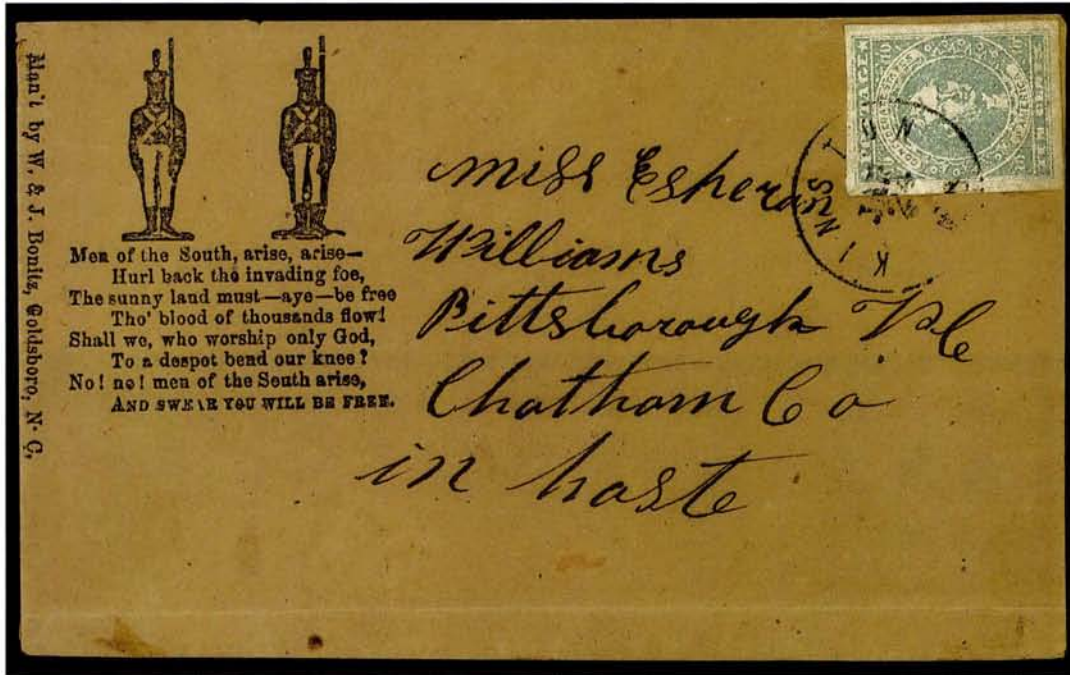 Man'f by W. & J. Bonitz, Goldsboro, N. C.
Men of the South, arise, arise—
Hurl back the invading foe,
The sunny land must—aye—be free
Tho' blood of thousands flow!
Shall we, who worship only God,
To a despot bend our knee?
No! no! men of the South arise,
AND SWEAR YOU WILL BE FREE.
Miss
Williams
Pittsborough NC
Chatham Co
in haste
KINST
POSTAGE
CONFEDERATE STATES
10